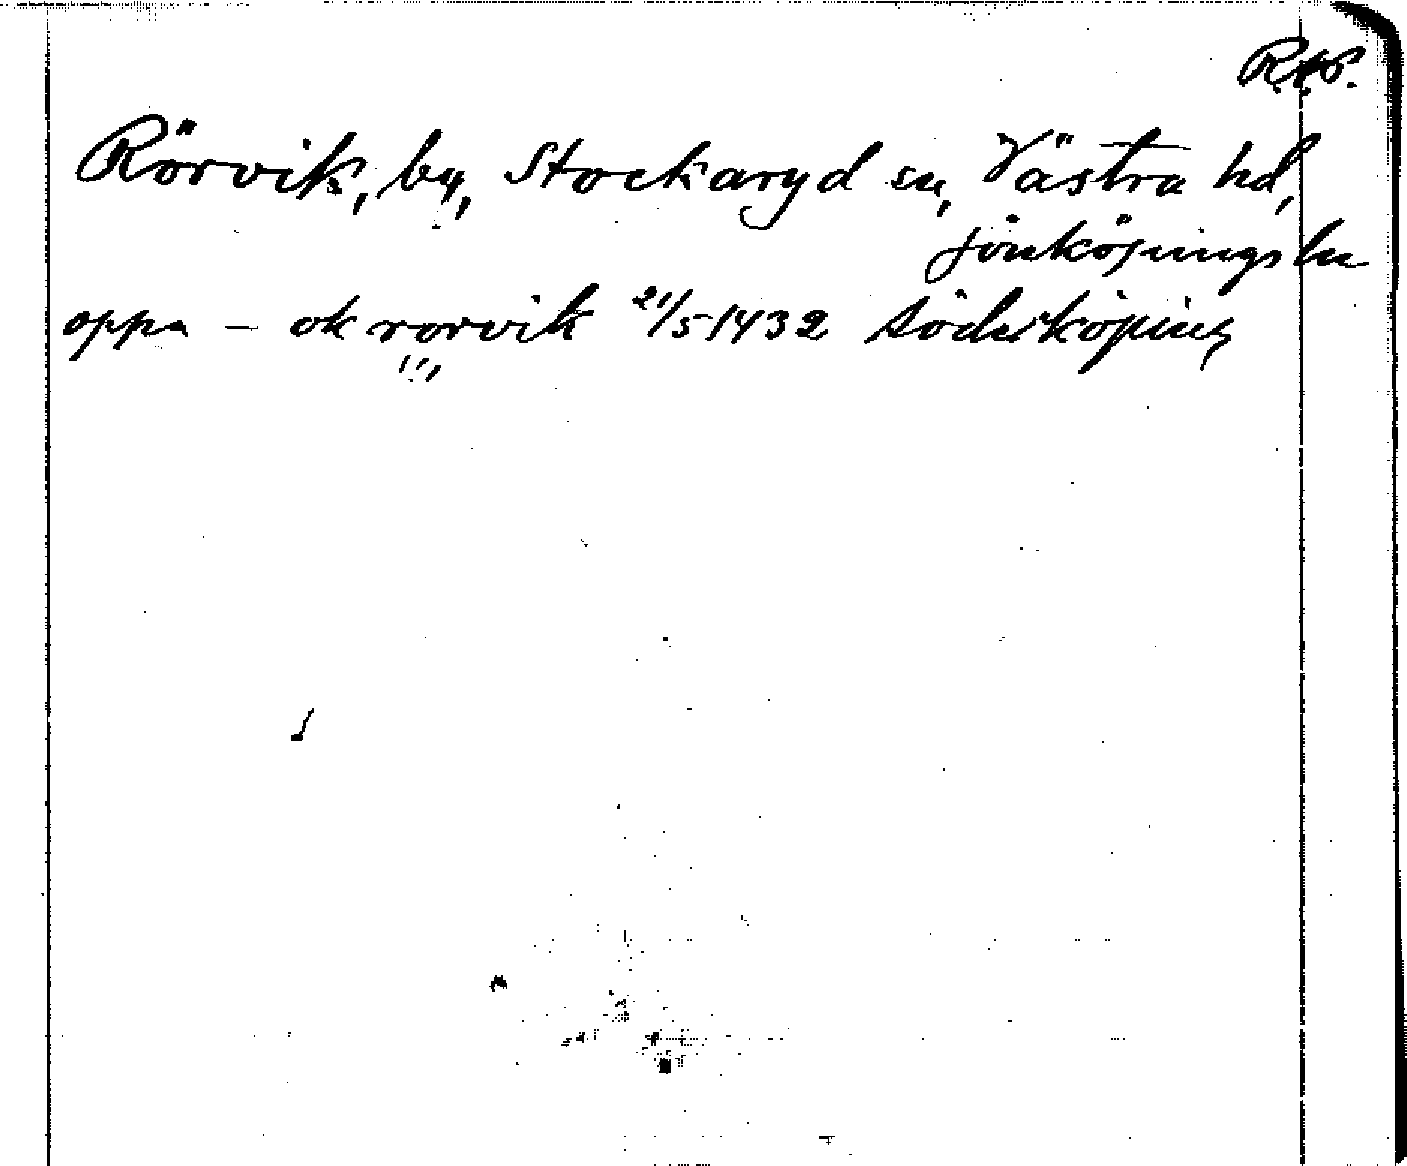 R.A.P.
Rörvik, by, Stockaryd sn, Västra hd,
Jönköpings ln
oppa – ok rorvik 21/5 1432 Söderköping